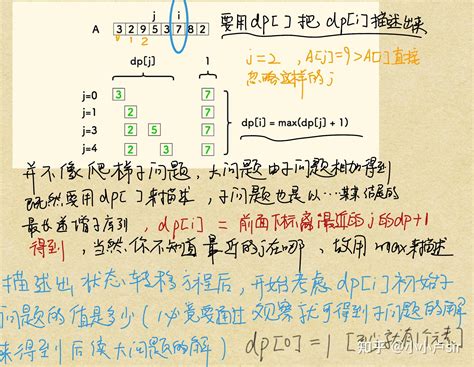 j i
A 3 2 9 5 3 7 8 2
3 2
1 2
要用dp[ ]把dp[i]描述出来
j=2, A[j]=9>A[i]直接
忽略这样的j
dp[j] 1
j=0 3 7
j=1 2 7
j=3 2 5 7
j=4 2 3 7
dp[i] = max(dp[j] + 1)
并不像爬梯子问题,大问题由子问题相加得到
既然要用dp[ ]来描述,子问题也是以…某某结尾的
最长递增子序列,dp[i] = 前面下标离最近的j的dp+1
得到,当然你不知道最近的j在哪,故用max来描述
描述出状态转移方程后,开始考虑dp[i]初始子
问题的值是多少(1必竟要通过观察就可得到子问题的解
来得到后续大问题的解) dp[0] = 1 [至少就有1个元素]
知乎